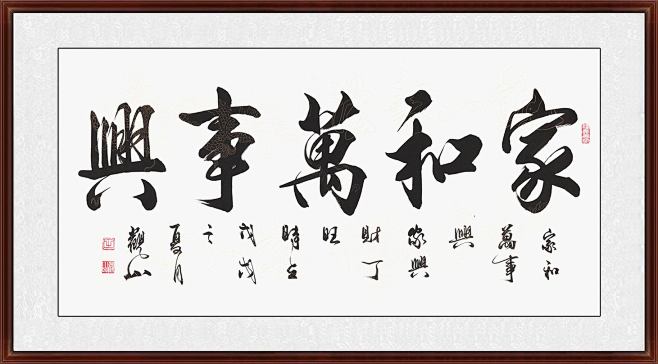 家和萬事興
家和
萬事
興
家興
財丁
旺
時在
戊戌
之
夏月
觀山